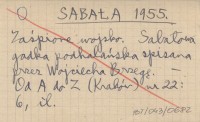 O SABAŁA 1955.
Zaśpione wojsko. Sabałowa
gadka podhalańska spisana
przez Wojciecha Brzegę.
Od A do Z (Kraków) nr 22:
6, il.